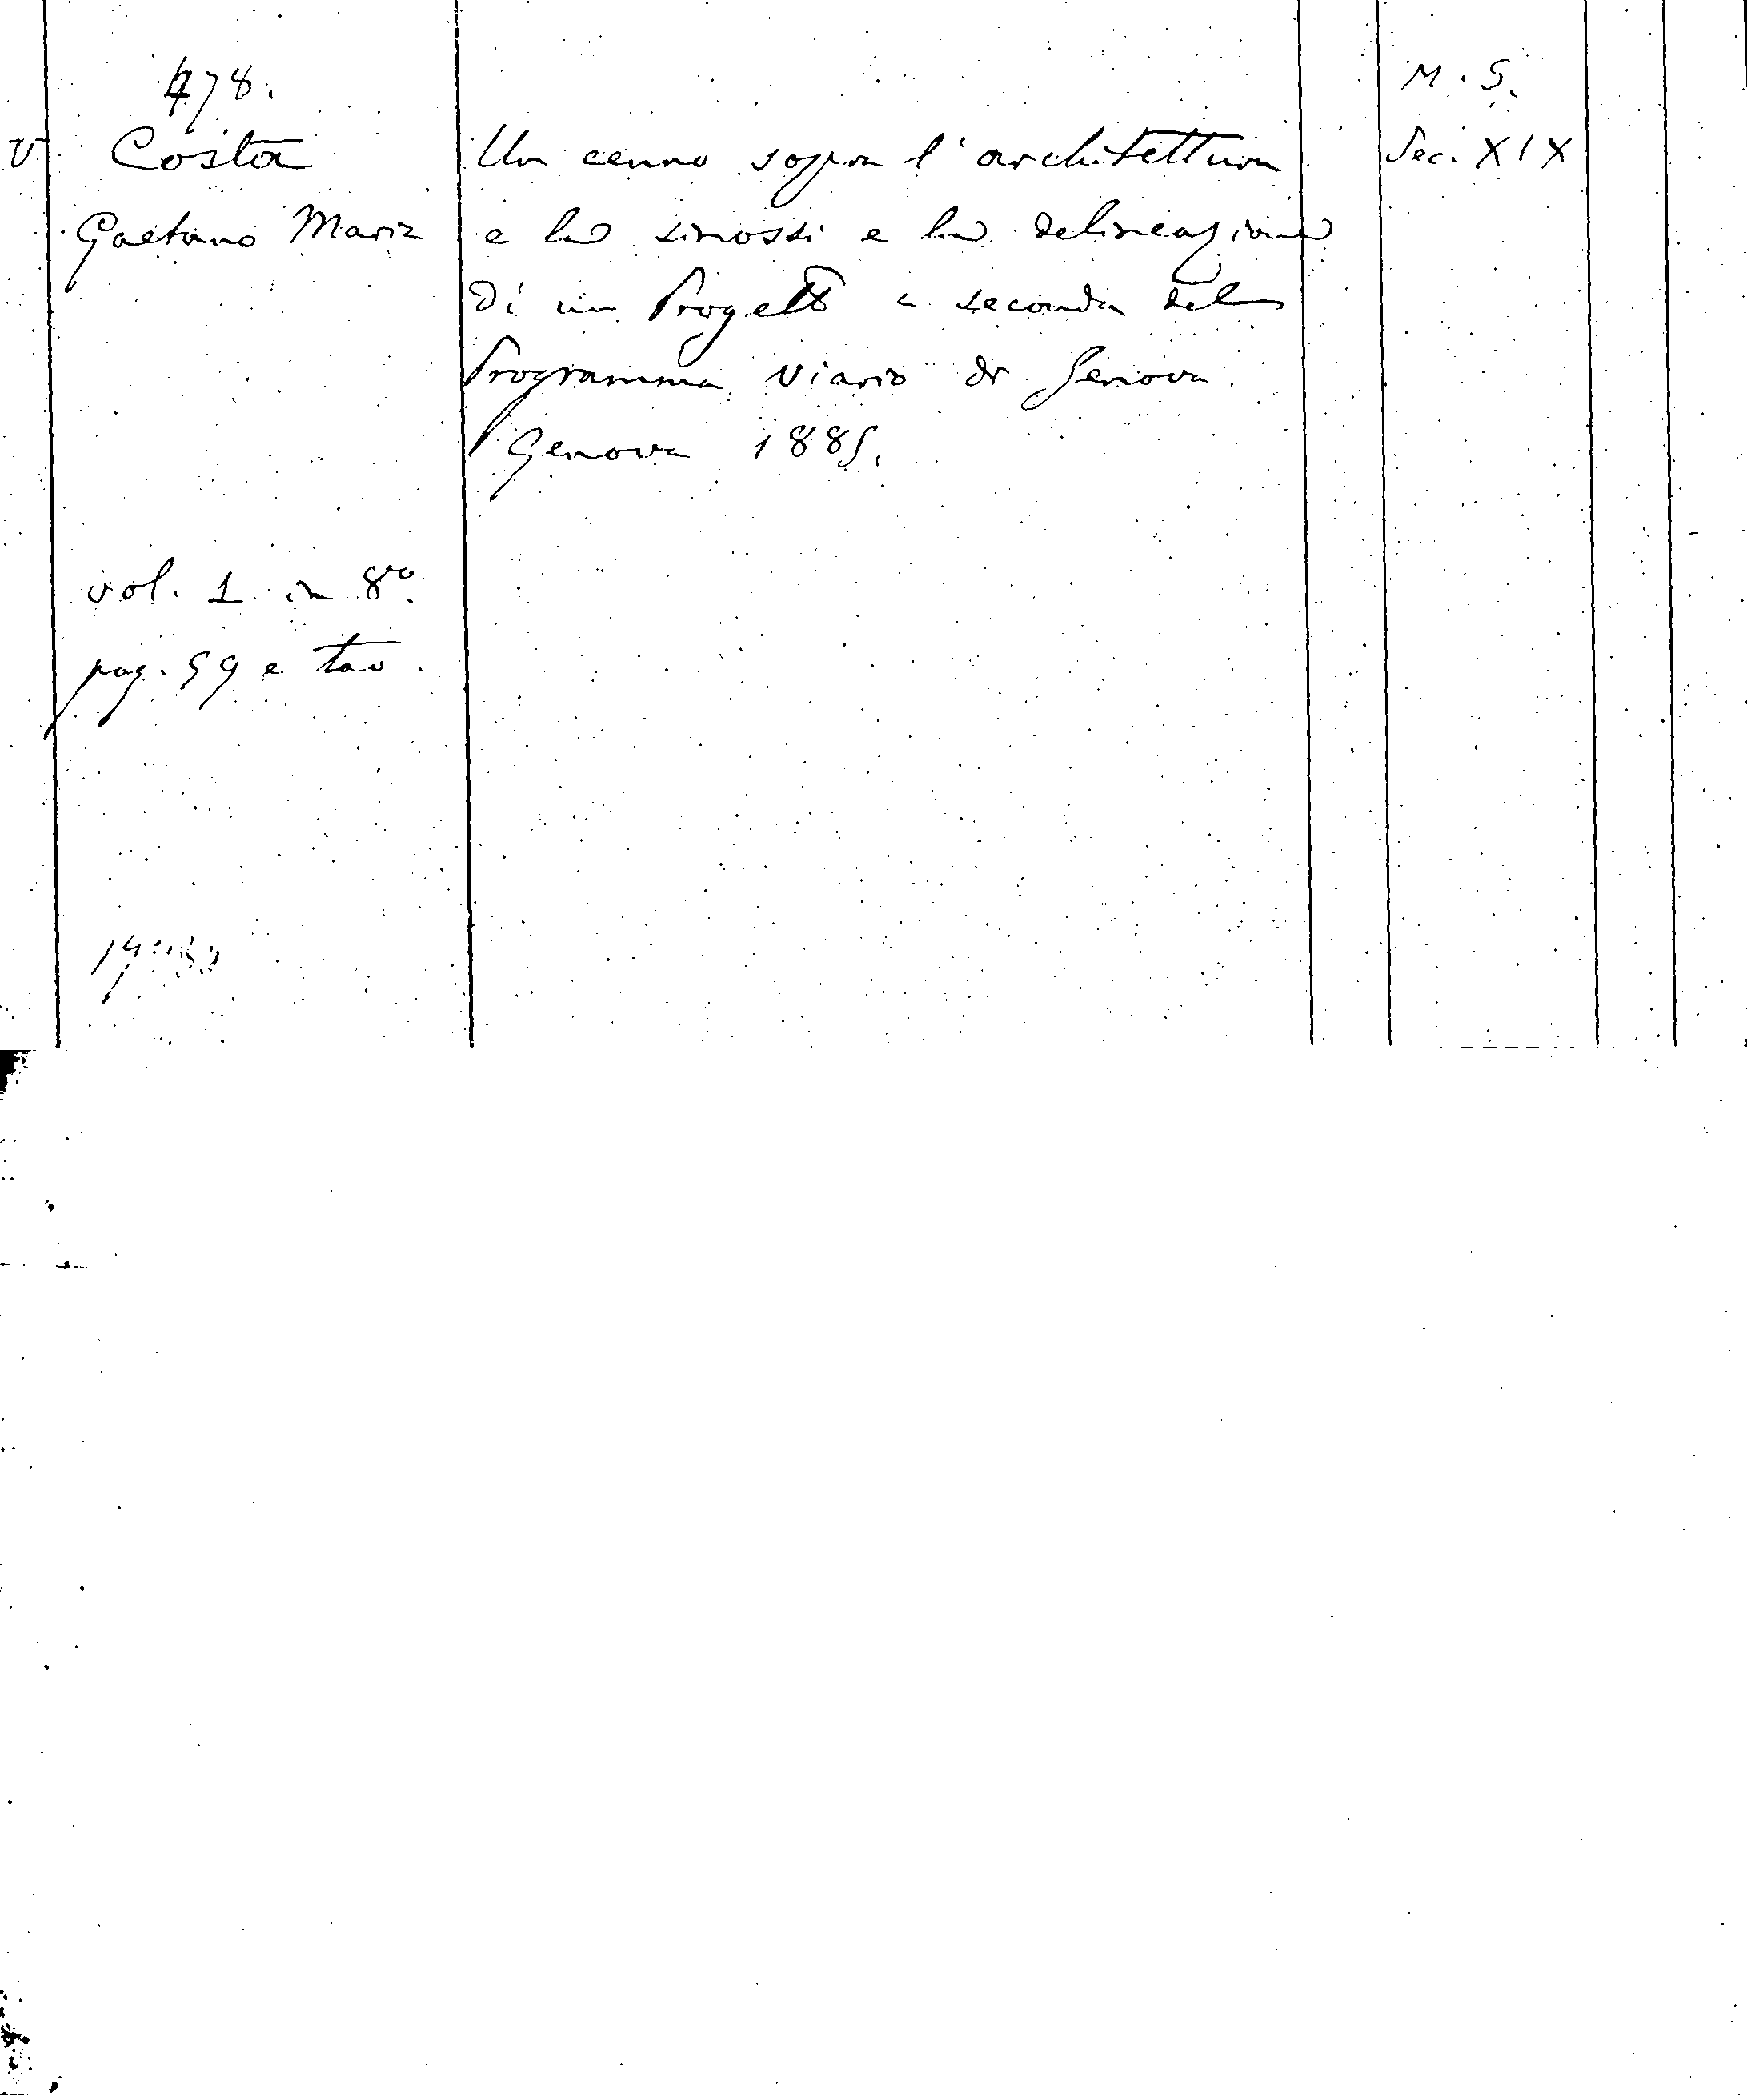 478.
V Costa
Gaetano Maria
Un cenno sopra l'architettura
e la sinossi e la delineazione
di un Progetto a seconda del
Programma viario di Genova.
Genova 1885.
M. S.
Sec. XIX
vol. 1 in 8vo.
pag. 59 e tav.